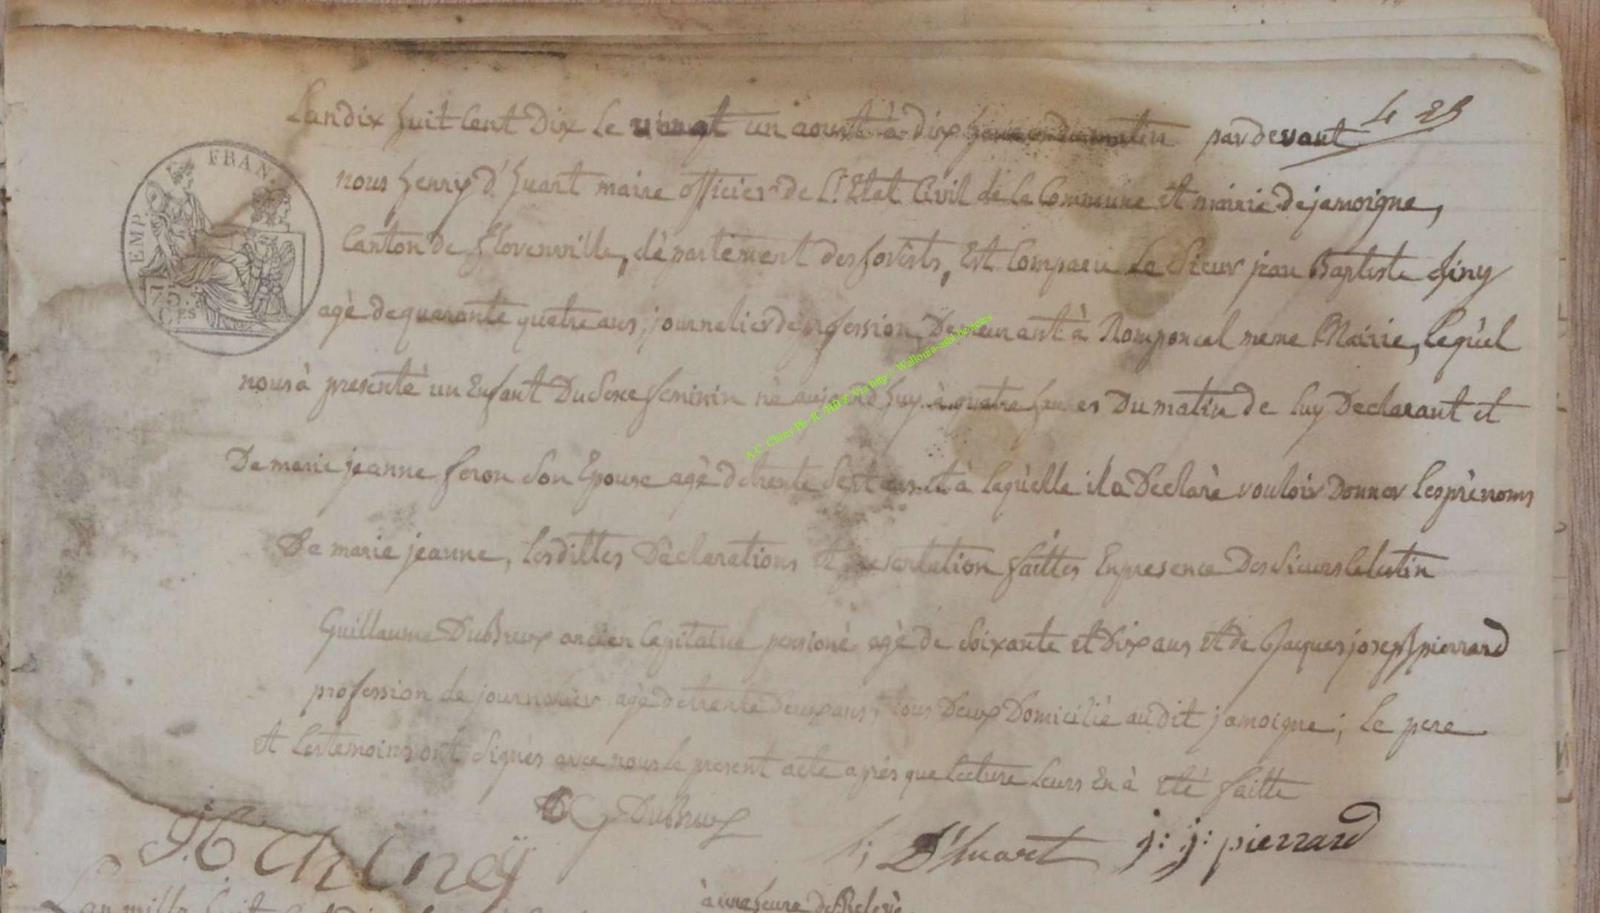 L'an dix huit Cent Dix le vingt un aoust à dix heures du matin pardevant
4 23
nous henry d'huart maire officier de L'Etat Civil de la Commune et mairie de jamoigne,
Canton de florenville, dèpartement des forêsts, Est Comparu Le Sieur jean Baptiste chiny
agè de quarante quatre ans, journalier de profession Demeurant à Romponcel meme Mairie, leqùel
nous à presenté un Enfant Du Sexe feminin nè aujourdhuy à quatre heures Du matin de luy Declarant et
De marie jeanne feron Son Epouse agè de trente Sept ans et à leqùelle il a Dèclarè vouloir Donner les prènoms
De marie jeanne, lesdittes Dèclarations et presentation faittes En presence Des Sieurs Celestin
Guillaume DuBreux ancien Capitaine pensionè agè de Soixante et Dix ans et de Jacques joseph pierrard
profession de journalier agè de trente Deux ans, tous Deux Domiciliè audit jamoigne; le pere
et les temoins ont Signès avec nous le present acte après que lecture leurs En à etè faitte
DuBreux
D'huart j: j: pierrard
Chiney
EMP. FRAN.
75 C.ES
L'an mille huit Cent
à une heure de Relevè